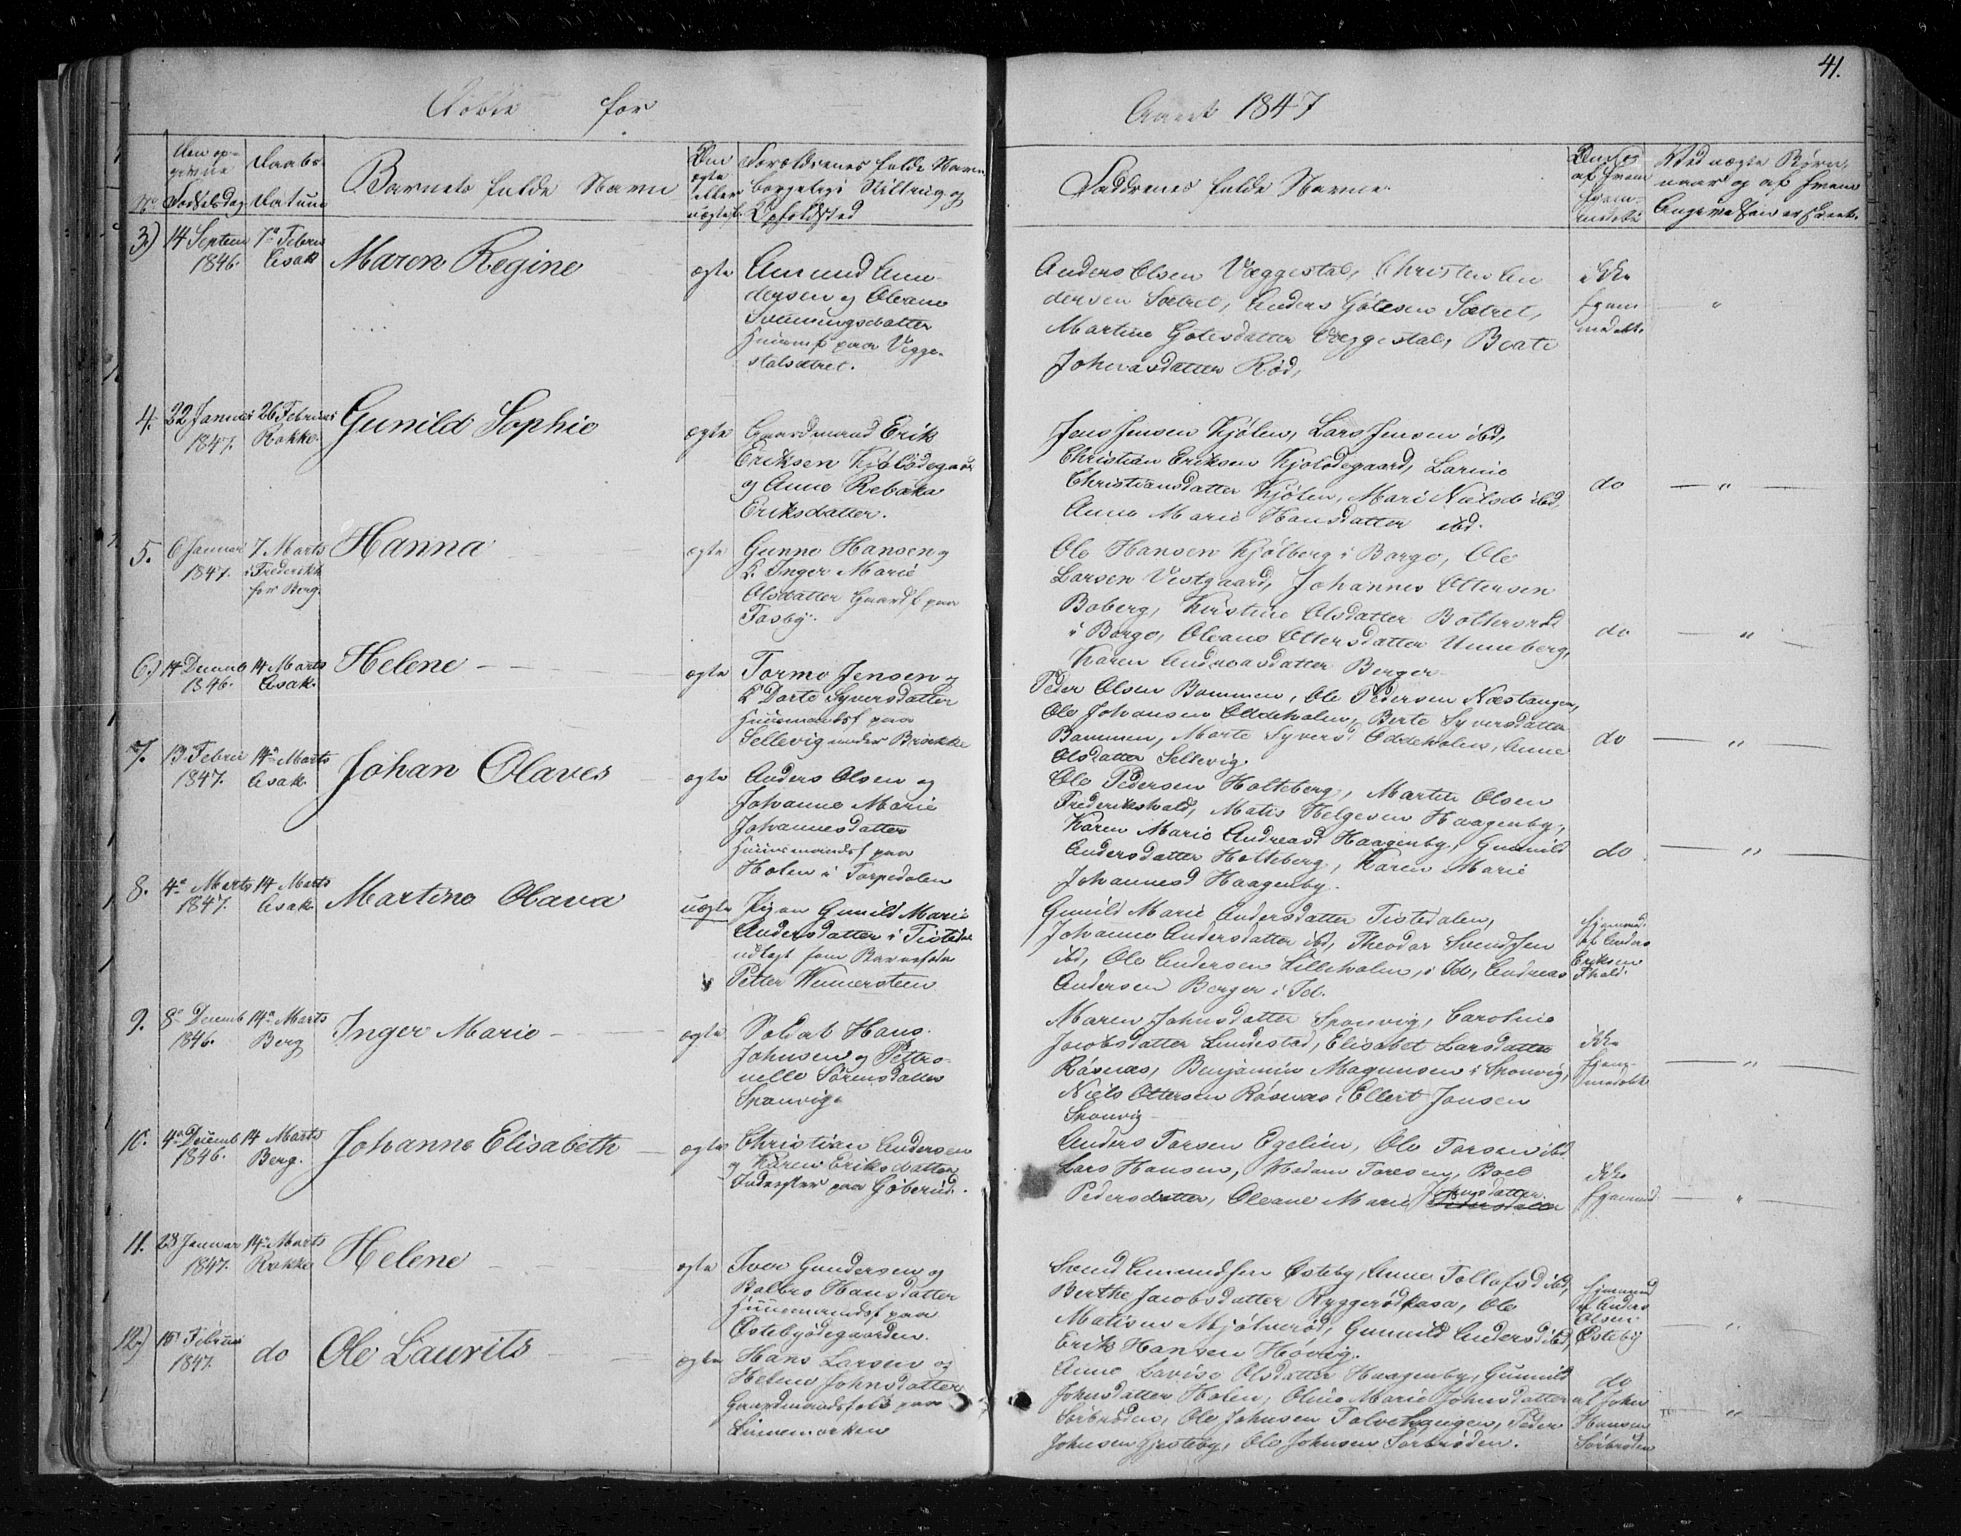 41.
Døbte for
Aaret 1847
No
Den op-
givne
Fødselsdag
Daabs
Datum
Barnets fulde Navn
Om
ægte
eller
uægte
Forældrenes fulde Navn,
borgelige Stilling og
Opholdsted
Faddernes fulde Navne
af hvem
Ved uægte Børn,
naar og af hvem
Angivelsen er skeet.
3) 14 Septem 1846. 7de Febru Asak
Maren Regine
ægte
Amund Amu-
dersen og Oleane
Svenningsdatter
Huusmf paa Vegge-
stalsætret.
Anders Olsen Væggestal, Christen An
dersen Sætret, Anders Gölesen Sætret,
Martine Golesdatter Væggestal, Beate
Johnasdatter Rød,
ikke
hjem
medøbt.
"
4. 22 Januar 1847. 26 Februar Rokke.
Gunild Sophie
ægte
Gaardmand Erik
Eriksen Kjölödegaar
og Anne Rebaka
Eriksdatter.
Jens Jensen Kjölen, Lars Jensen ibd,
Christian Eriksen Kjolödegaard, Larine
Christiansdatter Kjölen, Mari Nielsd ibd,
Anne Marie Hansdatter ibd.
do
"
5. 6 Januar 1847. 7 Marts i Frederikh for Berg.
Hanna
ægte
Gunne Hansen og
K. Inger Marie
Olsdatter Gaardf paa
Tosby.
Ole Hansen Kjölberg i Borge, Ole
Larsen Vestgaard, Johannes Ottersen
Boberg, Kirstine Olsdatter Bolterød
i Borge, Oleane Ottersdatter Unneberg,
Karen Andreasdatter Berger
do
"
6) 14 Decemb 1846. 14 Marts Asak.
Helene
ægte
Tormo Jensen og
K Dorte Syversdatter
Huusmandsf paa
Sellevig under Brække
Peder Olsen Bommen, Ole Pedersen Næstangen,
Ole Johansen Oddeholen, Berte Syversdatter
Bommen, Marte Syvers Oddeholen, Anne
Olsdatter Sellevig.
do
"
7. 13 Febru 1847. 14de Marts Asak.
Johan Olaves
ægte
Anders Olsen og
Johanne Marie
Johannesdatter
Huusmandsf paa
Holen i Torpedalen
Ole Pedersen Holteberg, Martin Olsen
Frederikshald, Matis Helgesen Haagenby,
Karen Marie Andreasd Haagenby, Gunnild
Andersdatter Holteberg, Karen Marie
Johannesd Haagenby.
do
"
8. 4de Marts 1847. 14 Marts Asak
Martine Olava
uægte
Pigen Gunild Marie
Andersdatter i Tistedal
udlagt som Barnefader
Petter Wennersteen
Gunild Marie Andersdatter Tistedalen,
Johanne Andersdatter ibd, Theodor Svendsen
ibd, Ole Andersen Lilleholen, i Id, Andreas
Andersen Berger i Id.
hjemmed.
af Anders
Eriksen
Fhald.
9. 8de Decemb 1846. 14de Marts Berg
Inger Marie
ægte
Soldat Hans
Johnsen og Pettro-
nelle Sörensdatter
Sponvig.
Maren Johnsdatter Sponvig, Caroline
Jacobsdatter Lundestad, Elisabet Larsdatter
Røsnæs, Benjamin Magnusen i Sponvig,
Niels Ottersen Røsnæs, Ellert Jensen
Sponvig
ikke
hjem-
medøbt
"
10. 4de Decemb 1846. 14 Marts Berg.
Johanne Elisabeth
ægte
Christian Andersen
og Karen Eriksdatter
Inderster paa Gjöberød.
Anders Torsen Egelien, Ole Torsen ibd.
Lars Hansen, Madam Toresen, Boel
Pedersdatter, Oleane Marie Johnsdatter
Pedersdatter
ikke
hjemmed.
"
11. 23 Januar 1847. 14de Marts Rokke
Helene
ægte
Iver Gundersen og
Bolbro Hansdatter
Huusmandsf paa
Østebyödegaarden.
Svend Amundsen Østeby, Anne Tollofsd ibd,
Berthe Jacobsdatter Ryggerödkasa, Ole
Matisen Mjölnerød, Gunnild Andersd ibd,
Erik Hansen Høvig.
hjemmed
af Anders
Olsen
Østeby
"
12) 15 Februar 1847. do
Ole Laurits
ægte
Hans Larsen og
Helene Johnsdatter
Gaardmandsfolk paa
Linnemarken
Anne Lovise Olsdatter Haagenby, Gunnild
Johnsdatter Holen, Oline Marie Johnsdatter
Sorbröden, Ole Johnsen Tolvehaugen, Peder
Johnsen Gjesteby, Ole Johnsen Sorbröden.
do
af John
Hansen
Sörbröden
"